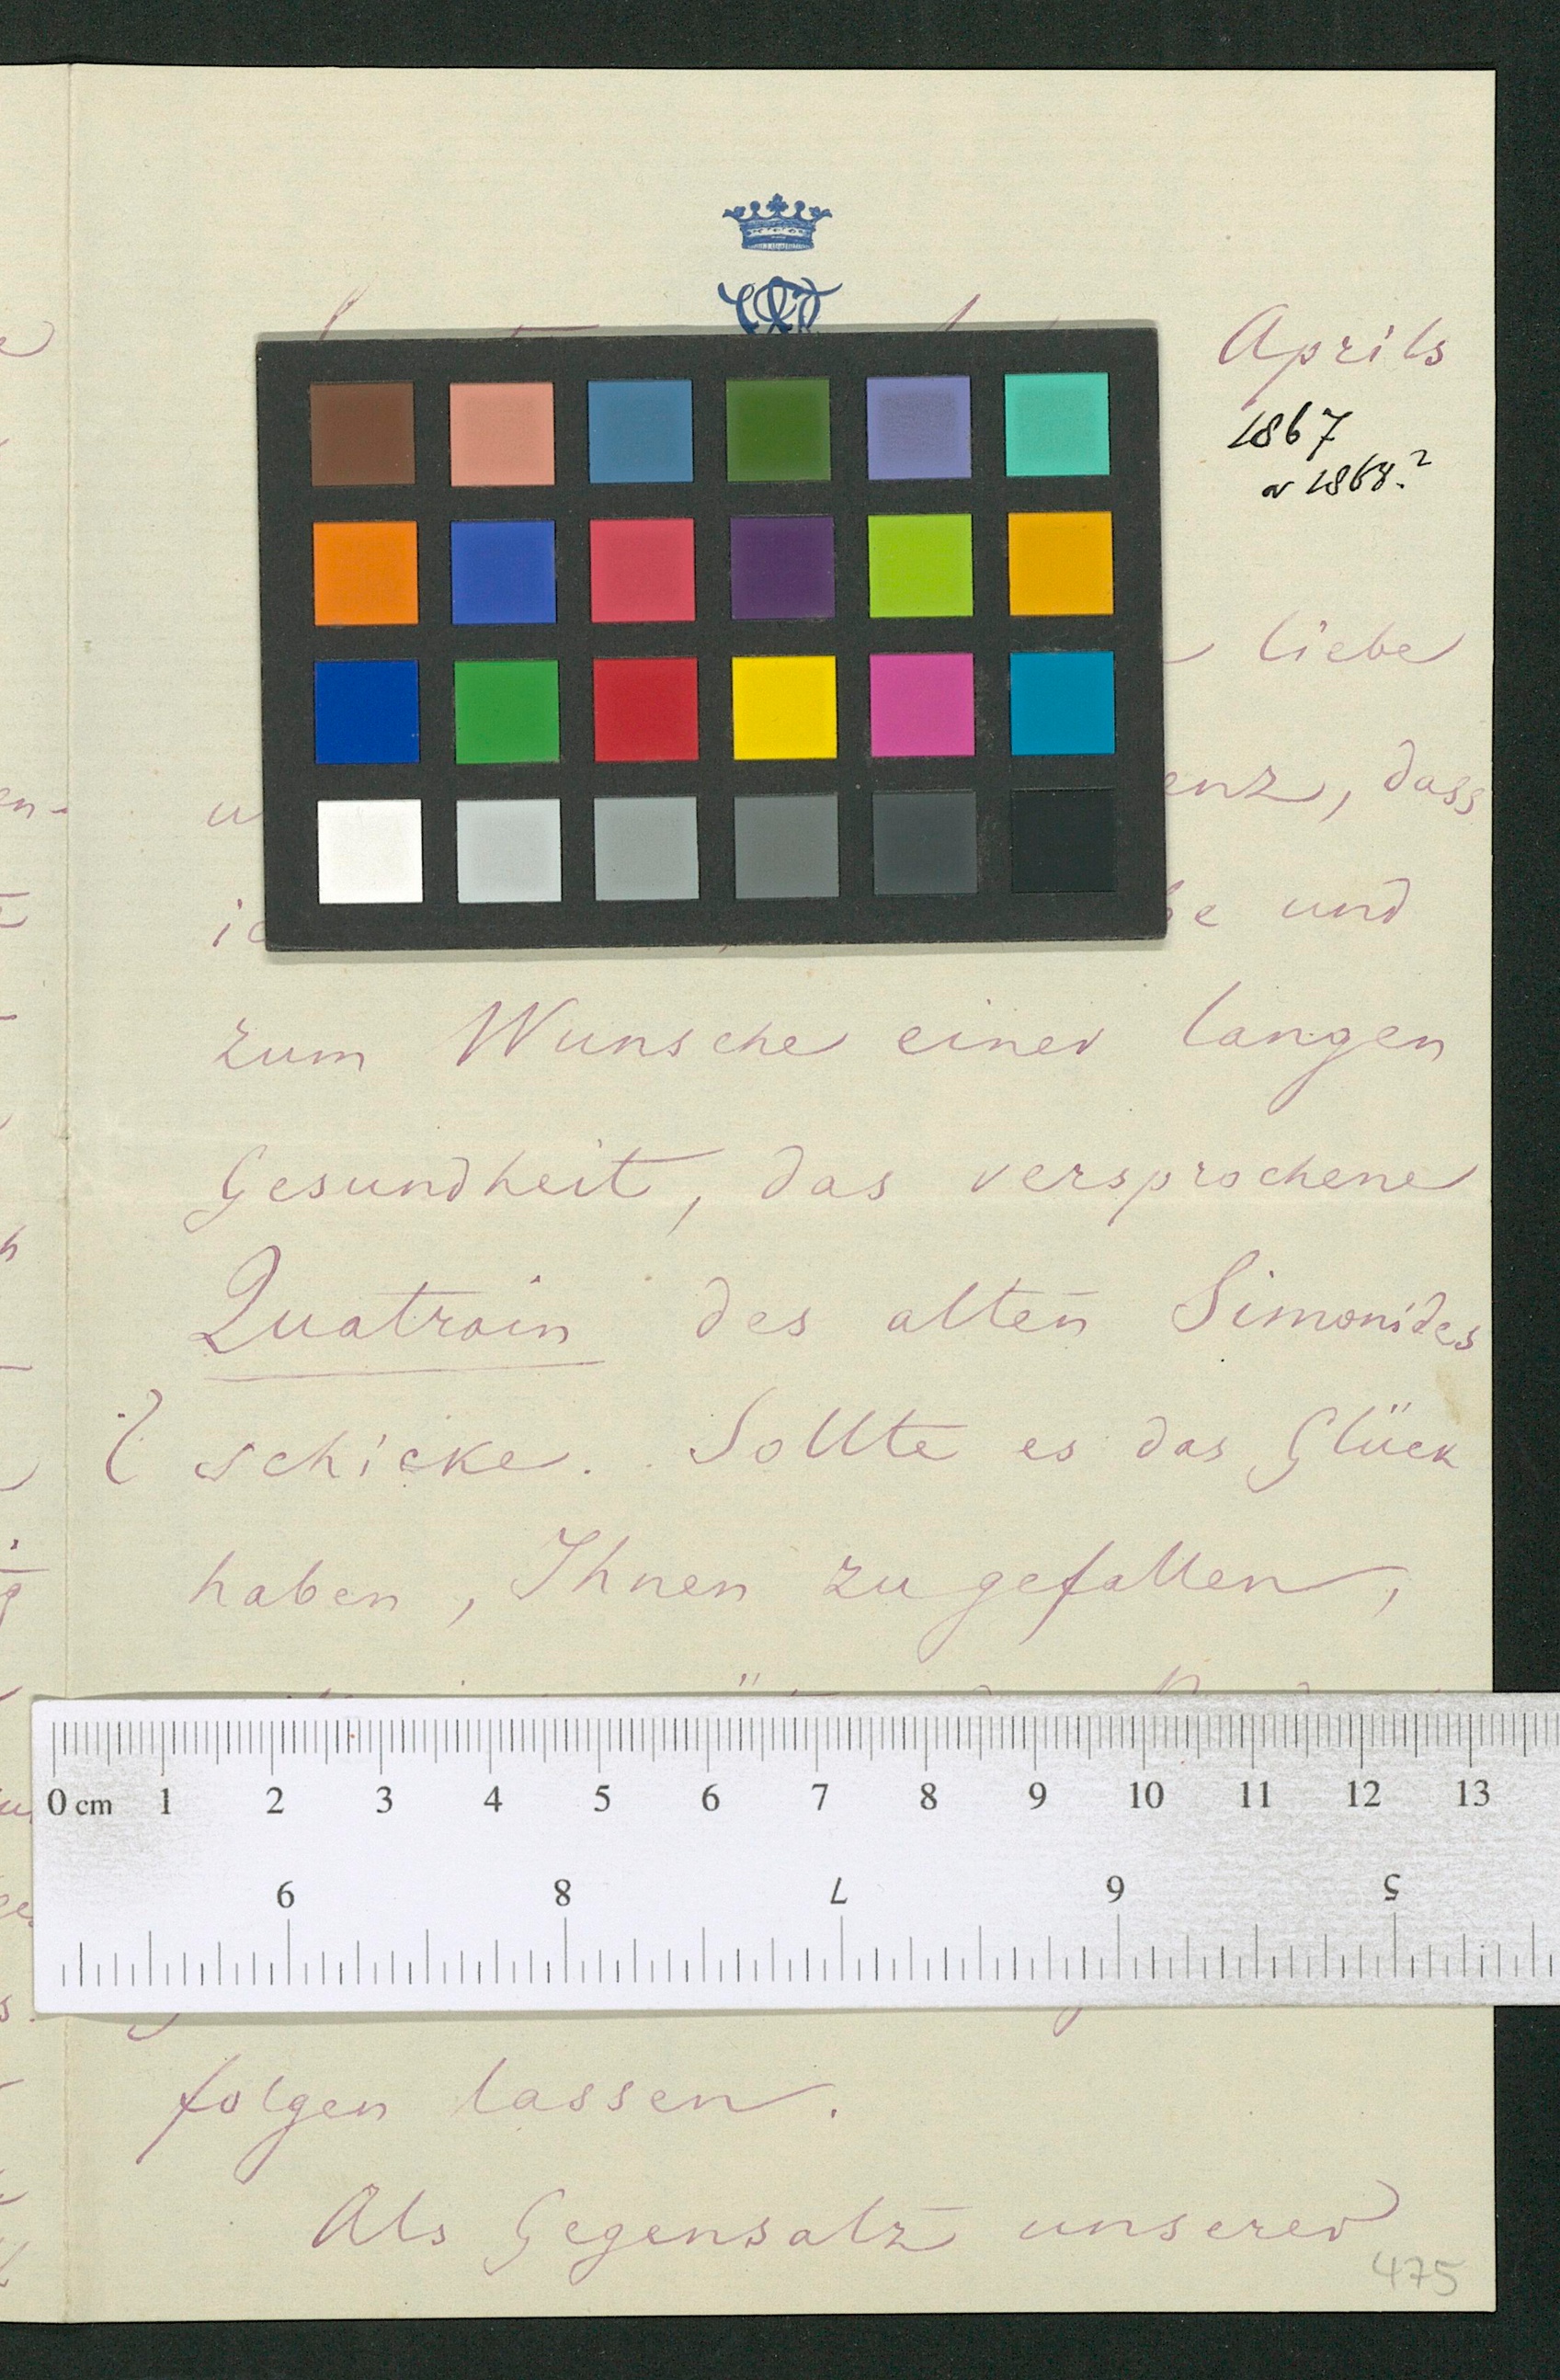 Aprils
1867
or 1868?
liebe
dass
und
zum Wunsche einer langen
Gesundheit, das versprochene
Quatrain des alten Simonides
schicke. Sollte es das Glück
haben, Ihnen zu gefallen,
0 cm 1 2 3 4 5 6 7 8 9 10 11 12 13
9 8 7 6 5
folgen lassen.
Als Gegensatz unserer
475